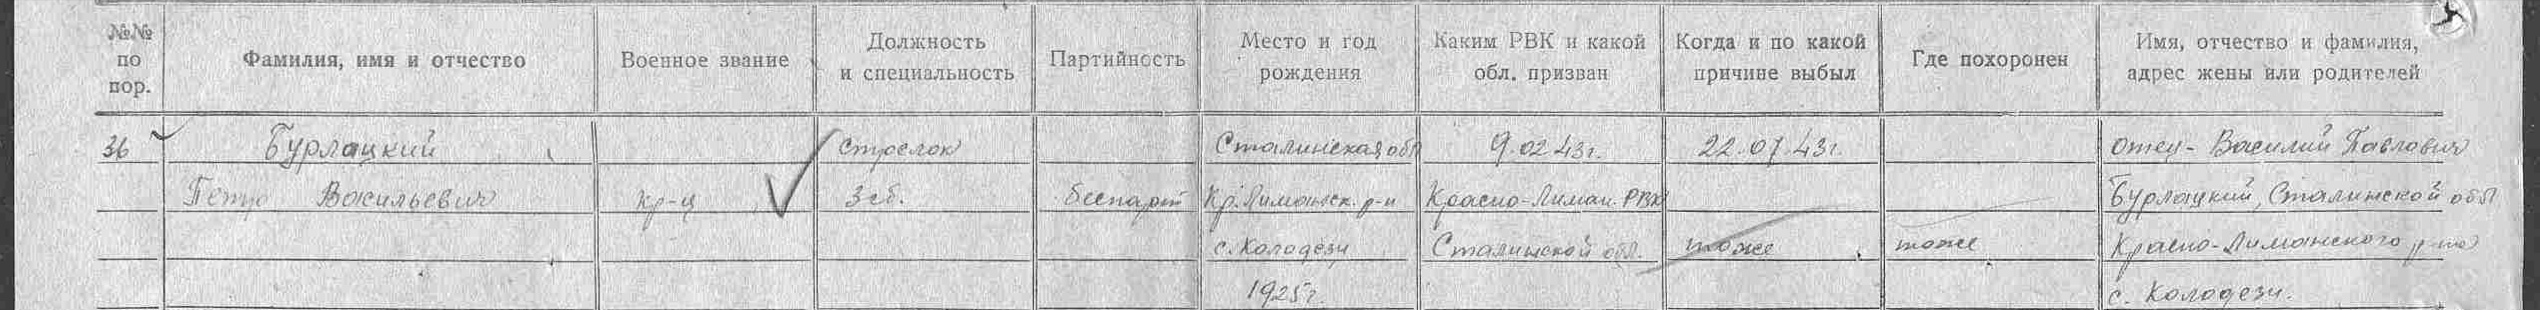 №№ по пор.
Фамилия, имя и отчество
Военное звание
Должность и специальность
Партийность
Место и год рождения
Каким РВК и какой обл. призван
Когда и по какой причине выбыл
Где похоронен
Имя, отчество и фамилия, адрес жены или родителей
36 Бурлацкий стрелок Сталинская обл 9.02.43г. 22.07.43г. отец - Василий Павлович
Петро Васильевич кр-ц 3 сб. беспарт Кр. Лиманск. р-н Красно-Лиман. РВК Бурлацкий, Сталинской обл
с. Колодези Сталинской обл. тоже тоже Красно-Лиманского р-на
1925г. с. Колодези.